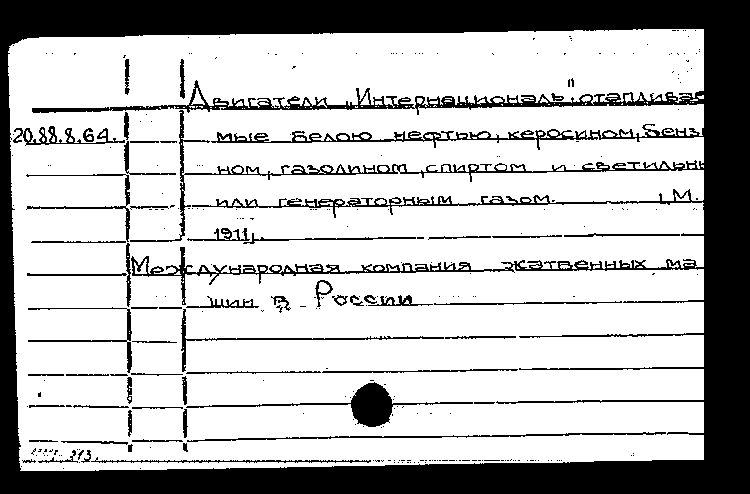 Двигатели „Интернационалъ" отапливае
20.88.8.64. мые белою нефтью, керосином, бензи
ном, газолином, спиртом и светильны
или генераторным газом. М.
1911.
Международная компания жатвенных ма
шин в России